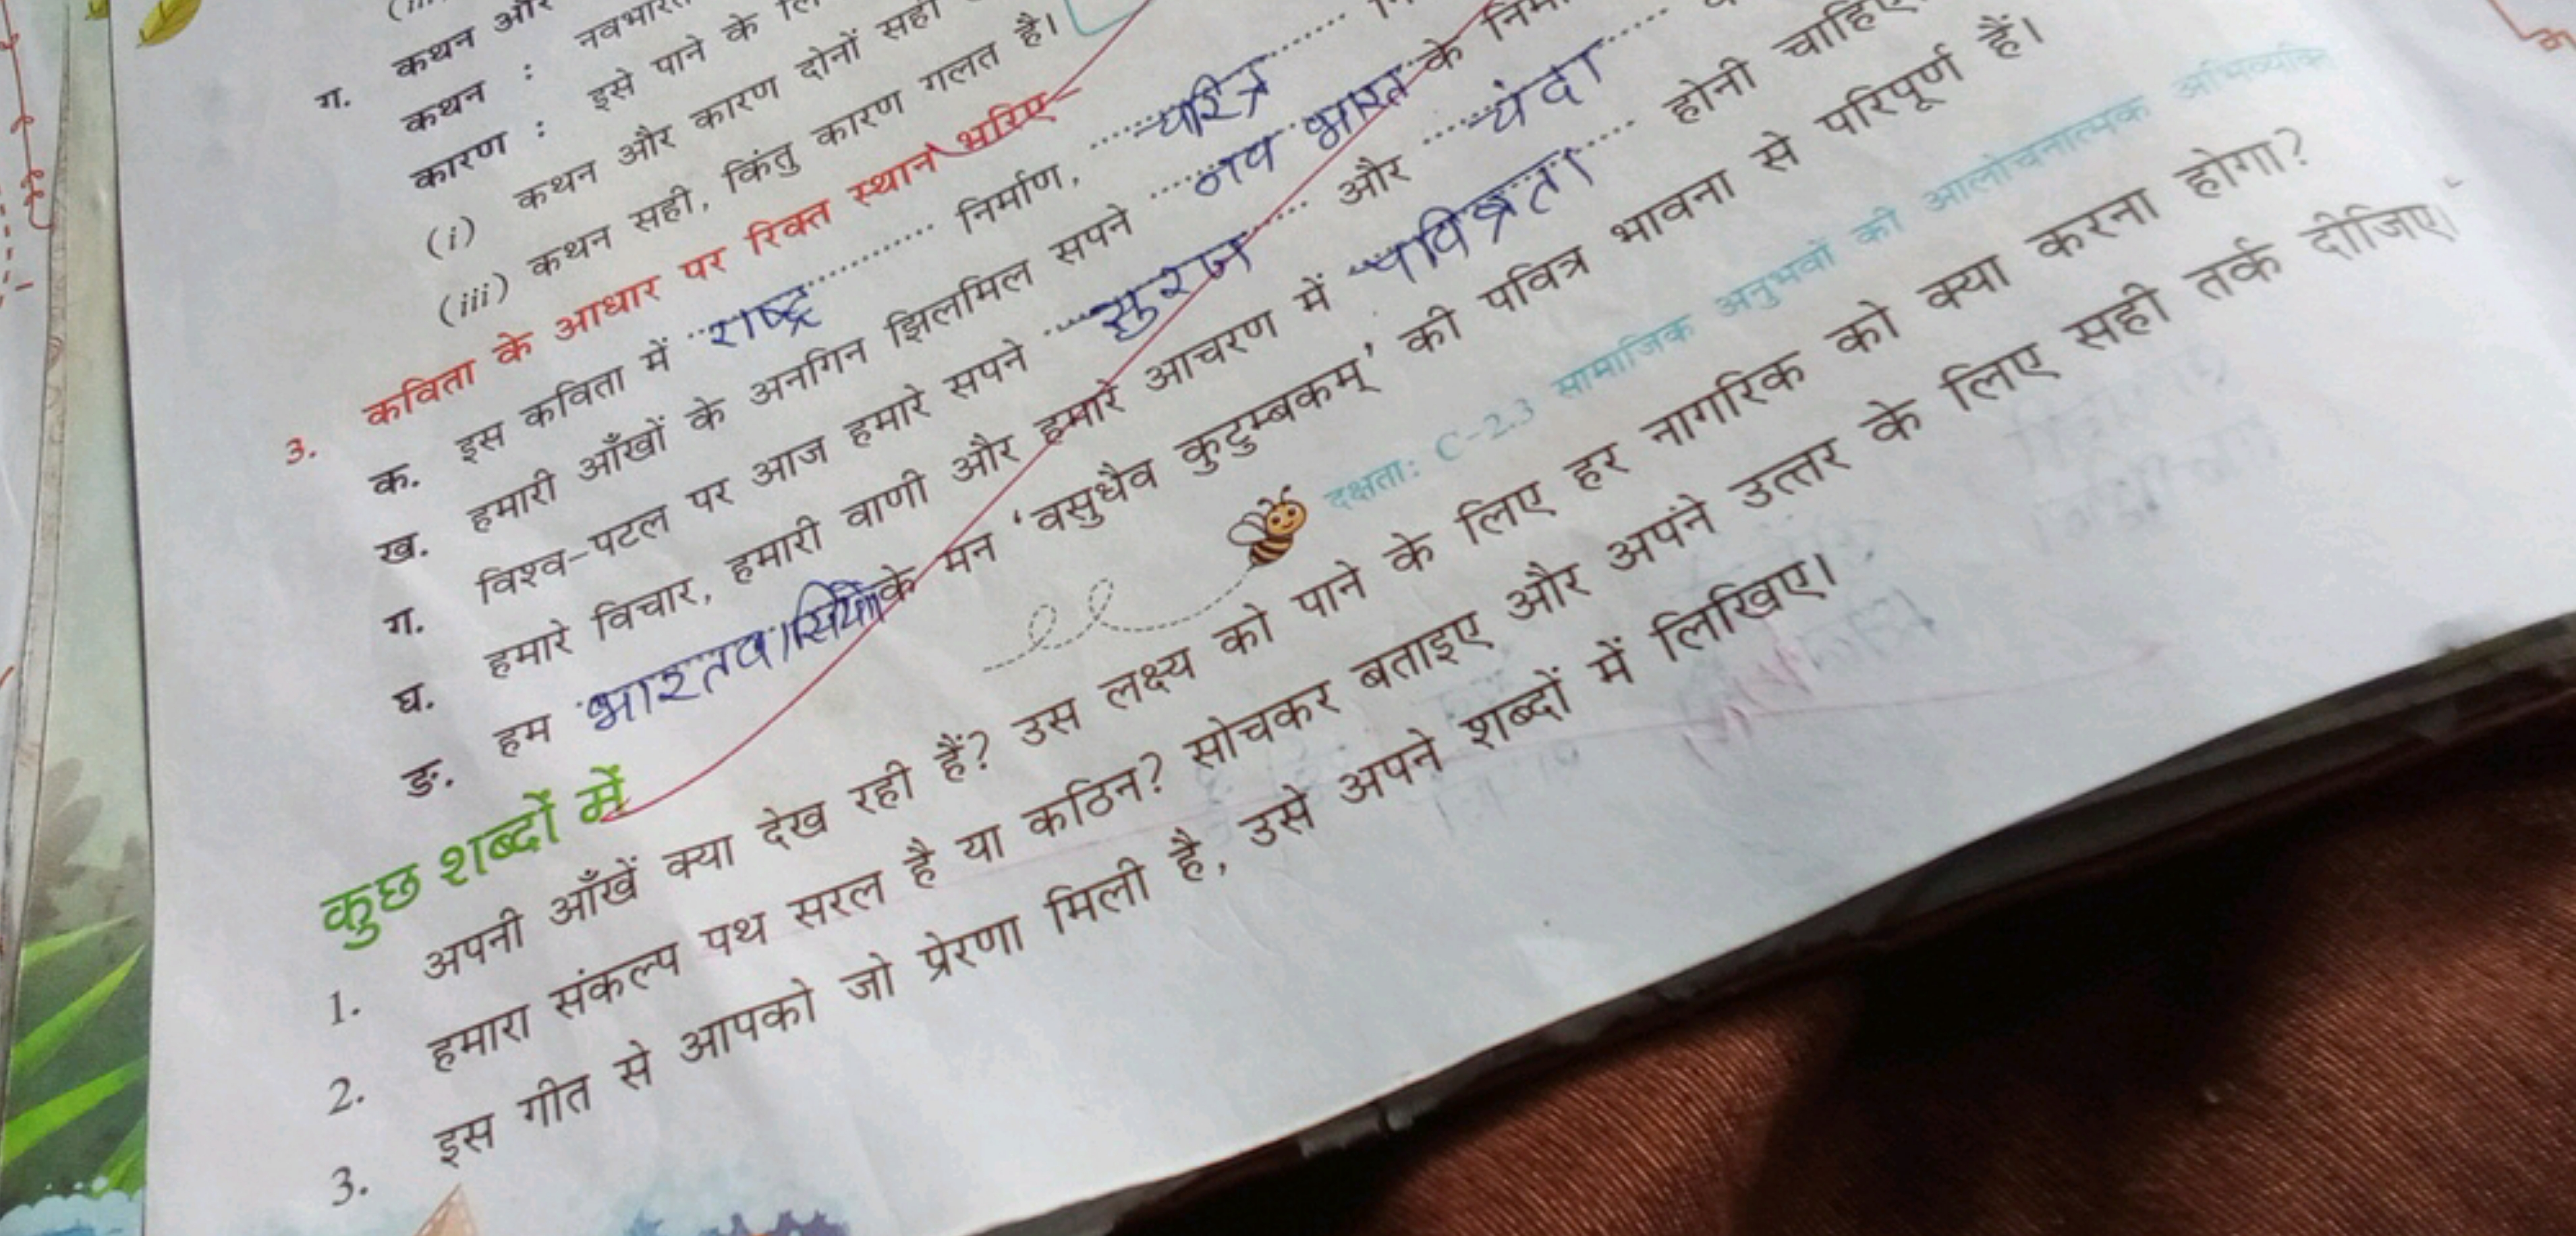 ग. कथन और
कथन : नवभारत
कारण : इसे पाने के
(i) कथन और कारण दोनों सही
(iii) कथन सही, किंतु कारण गलत है।
3. कविता के आधार पर रिक्त स्थान भरिए-
क. इस कविता में राष्ट्र निर्माण, चरित्र
ख. हमारी आँखों के अनगिन झिलमिल सपने नव भारत के
ग. विश्व-पटल पर आज हमारे सपने सुरज और चंदा
घ. हमारे विचार, हमारी वाणी और हमारे आचरण में पवित्रता होनी चाहिए
ङ. हम भारतवासियों के मन 'वसुधैव कुटुम्बकम्' की पवित्र भावना से परिपूर्ण हैं।
दक्षता: C-2.3 सामाजिक अनुभवों की आलोचनात्मक अभिव्यक्ति
कुछ शब्दों में
1. अपनी आँखें क्या देख रही हैं? उस लक्ष्य को पाने के लिए हर नागरिक को क्या करना होगा?
2. हमारा संकल्प पथ सरल है या कठिन? सोचकर बताइए और अपने उत्तर के लिए सही तर्क दीजिए।
3. इस गीत से आपको जो प्रेरणा मिली है, उसे अपने शब्दों में लिखिए।